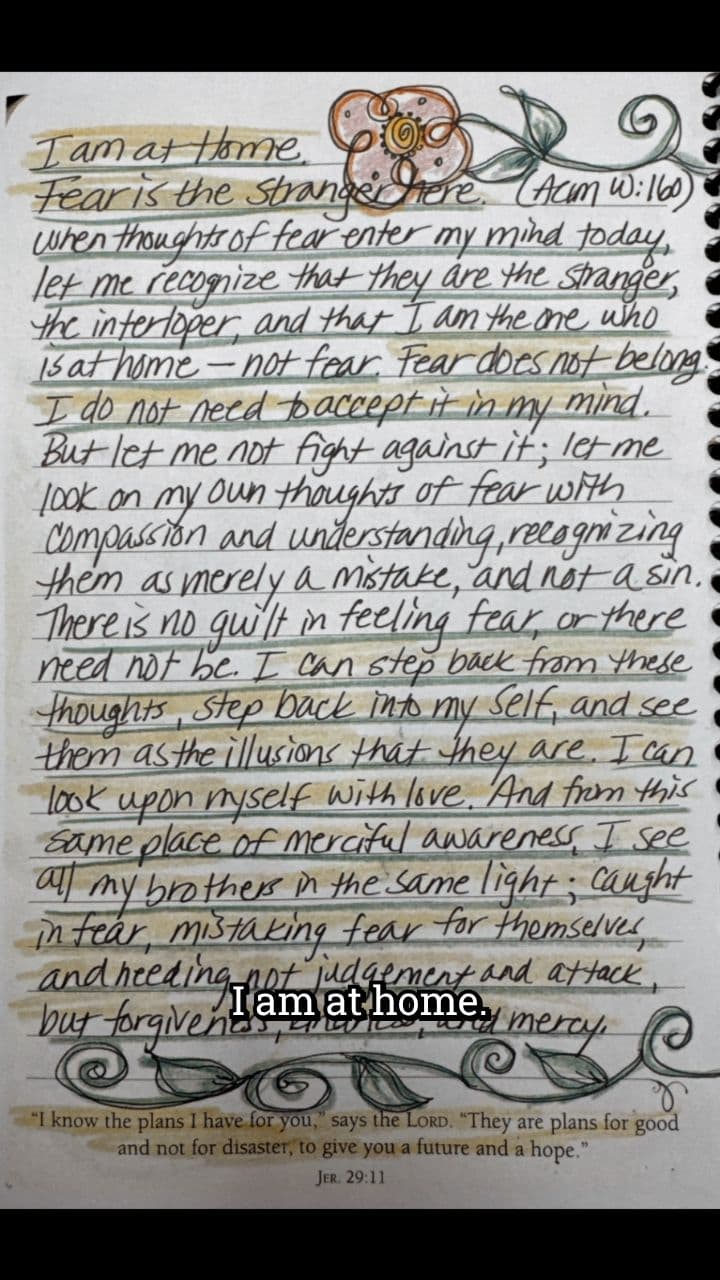 I am at Home.
Fear is the stranger here. (Acim W:160)
when thoughts of fear enter my mind today,
let me recognize that they are the stranger,
the interloper, and that I am the one who
is at home – not fear. Fear does not belong.
I do not need to accept it in my mind.
But let me not fight against it; let me
look on my own thoughts of fear with
compassion and understanding, recognizing
them as merely a mistake, and not a sin.
There is no guilt in feeling fear, or there
need not be. I can step back from these
thoughts, step back into my Self, and see
them as the illusions that they are. I can
look upon myself with love. And from this
same place of merciful awareness, I see
all my brothers in the same light; caught
in fear, mistaking fear for themselves,
and needing not judgement and attack,
but forgiveness, and mercy.
I am at home.
“I know the plans I have for you,” says the LORD. “They are plans for good
and not for disaster, to give you a future and a hope.”
JER. 29:11